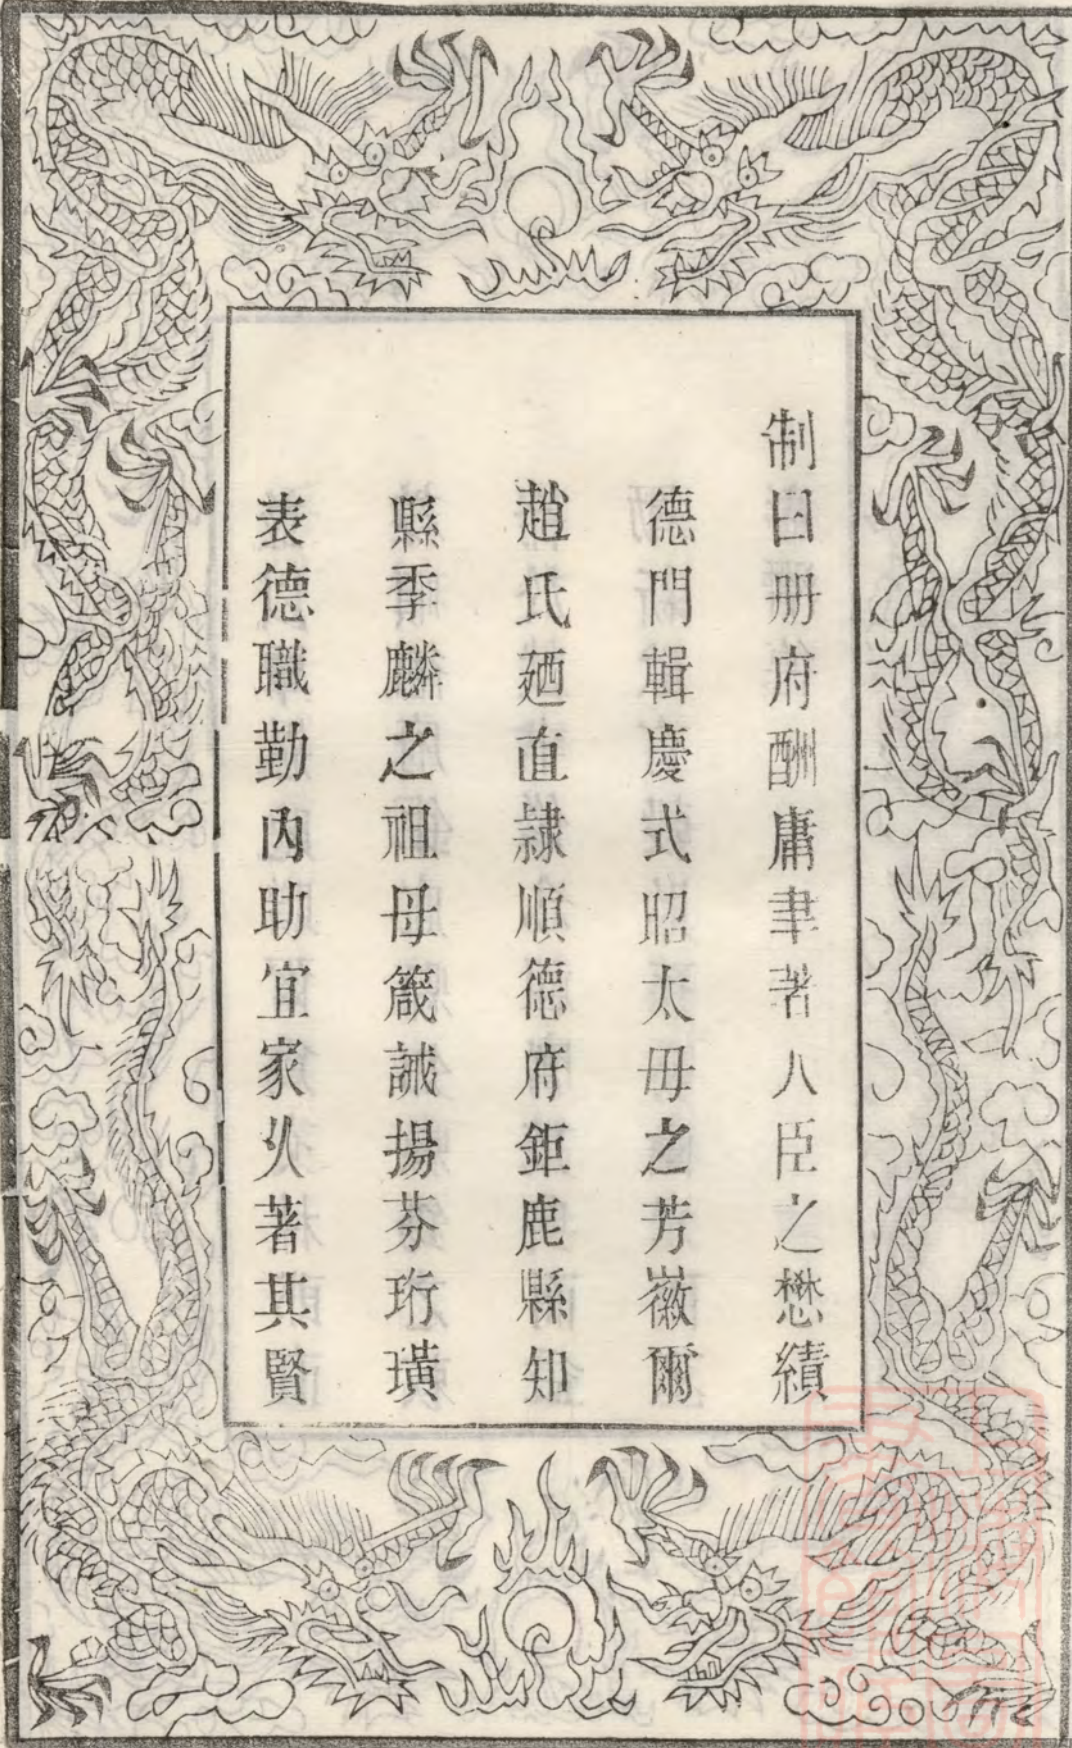 制曰册府酬庸聿著人臣之懋績
德門輯慶式昭太毋之芳徽爾
趙氏廼直隷順德府鉅鹿縣知
縣季麟之祖母箴誡揚芬珩璜
表德職勤內助宜家乆著其賢